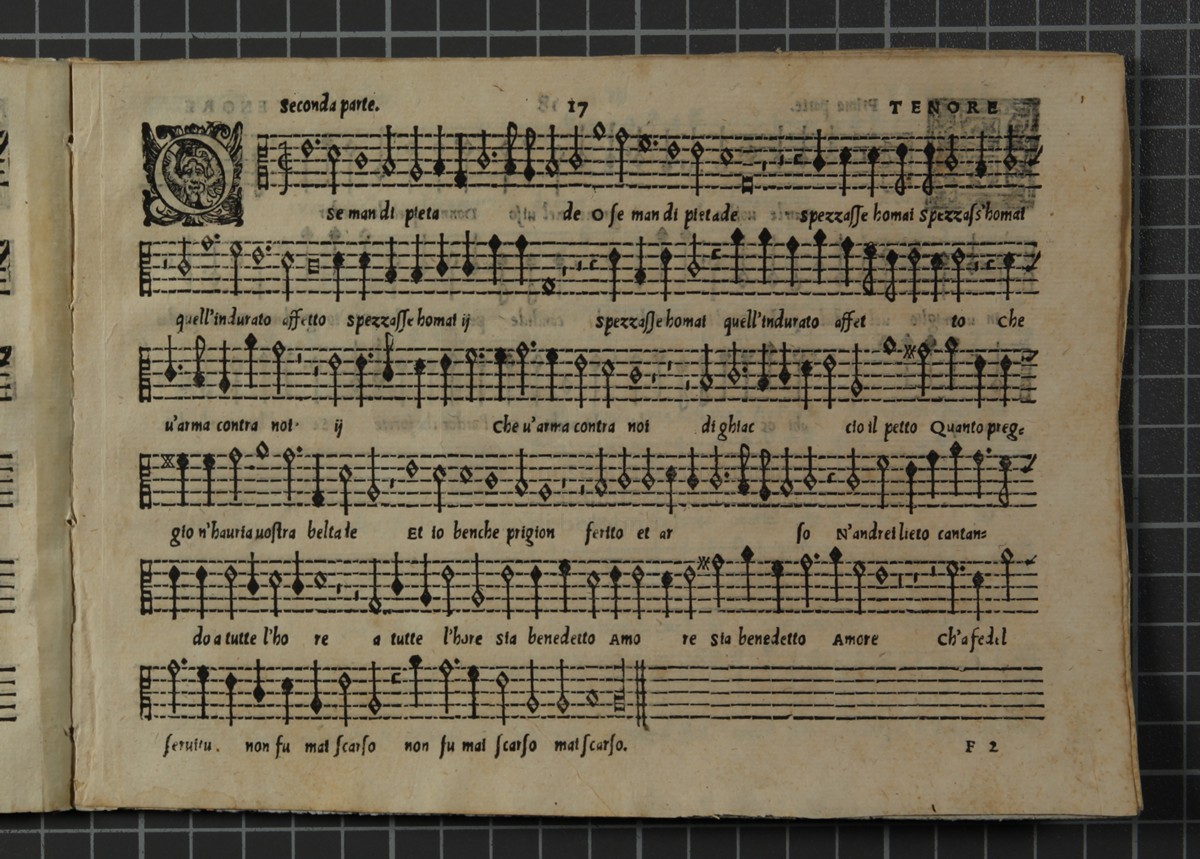 Seconda parte. 17 TENORE
O se man di pieta de O se man di pietade spezzasse homai Spezzass'homai
quell'indurato affetto spezzasse homai ij spezzasse homai quell'indurato affet to Che
u'arma contra noi ij Che u'arma contra noi di ghiac cio il petto Quanto preg=
gio n'hauria uostra beltate Et io benche prigion ferito et ar so N'andrei lieto cantan=
do a tutte l'ho re a tutte l'hore sia benedetto Amo re sia benedetto Amore Ch'a fedel
seruitu. non fu mai scarso non fu mai scarso mai scarso.
F 2